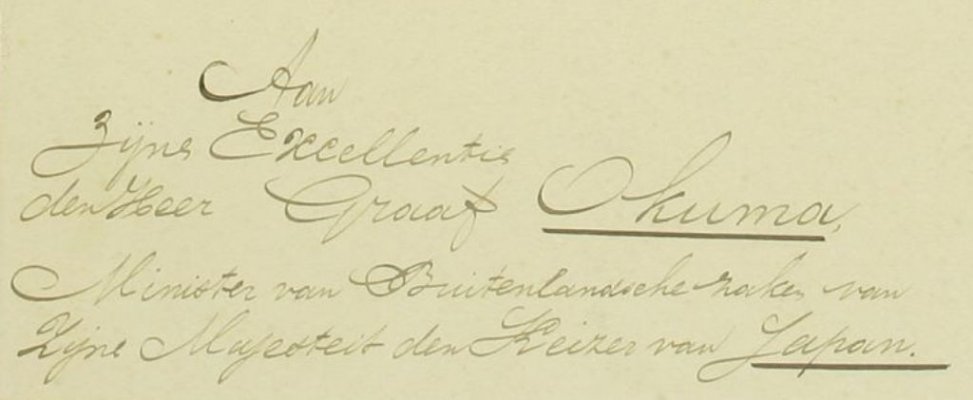 Aan
Zijne Excellentie
den Heer Graaf Okuma,
Minister van Buitenlandsche zaken van
Zijne Majesteit den Keizer van Japan.